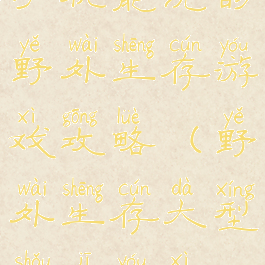 yě wài shēng cún yóu
野外生存游
xì gōng lüè yě
戏攻略（野
wài shēng cún dà xíng
外生存大型
shǒu jī yóu xì